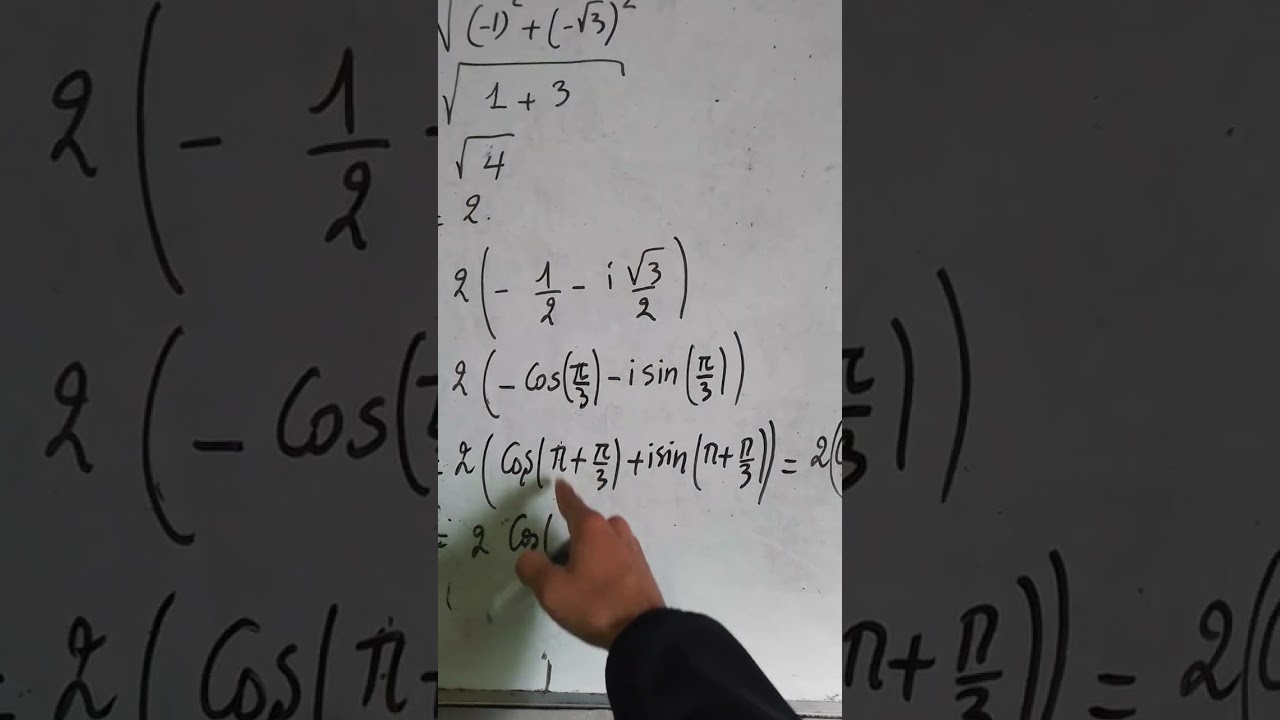 √(-1)² + (-√3)²
√1 + 3
√4
= 2.
2(- 1/2 - i √3/2)
2(- cos(π/3) - i sin(π/3))
= 2(cos(π + π/3) + i sin(π + π/3)) = 2(
= 2 cos(